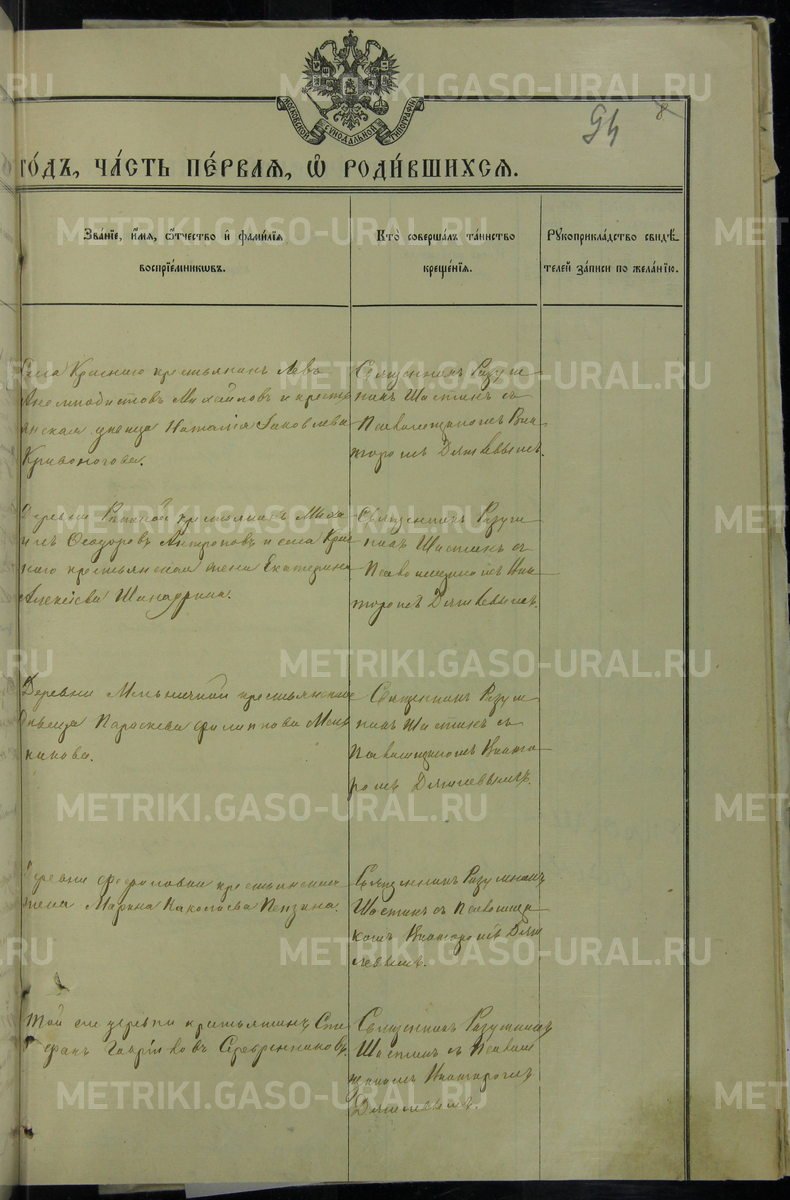 МОСКОВСКОЙ СѴНОДАЛЬНОЙ ТИПОГРАФІИ
94
го́дъ, ча́сть пе́рваѧ, ѡ҆ роди́вшихсѧ.
Зва́нїе, и҆́мѧ, ѻ҆́тчество и҆ фами́лїѧ
воспрїе́мникѡвъ.
Кто̀ соверша́лъ та́инство
креще́нїѧ.
Рꙋкоприкла́дство свидѣ́-
телей за́писи по жела́нїю.
Села Краснаго крестьянинъ Левъ
Анемподистовъ Михайловъ и кресть
янская дѣвица Наталія Яковлева
Кривоногова.
Священникъ Разум
никъ Шастинъ съ
Псаломщикомъ Вик
торомъ Дягилевымъ.
Деревни крестьянинъ Миха
илъ Ѳеодоровъ Антроповъ и села Крас
наго крестьянская жена Екатерина
Алексѣева
Священникъ Разум
никъ Шастинъ съ
Псаломщикомъ Вик
торомъ Дягилевымъ.
Деревни Мельничной крестьянская
дѣвица Параскева Филиппова Мень
никова.
Священникъ Разум
никъ Шастинъ съ
Псаломщикомъ Викто
ромъ Дягилевымъ.
Деревни крестьянская
жена Марина Николаева Пензина.
Священникъ Разумникъ
Шастинъ съ Псаломщи
комъ Викторомъ Дяги
левымъ.
Той же деревни крестьянинъ Сте
фанъ Гавріиловъ Серебренниковъ.
Священникъ Разумникъ
Шастинъ съ Псалом
щикомъ Викторомъ
Дягилевымъ.
METRIKI.GASO-URAL.RU